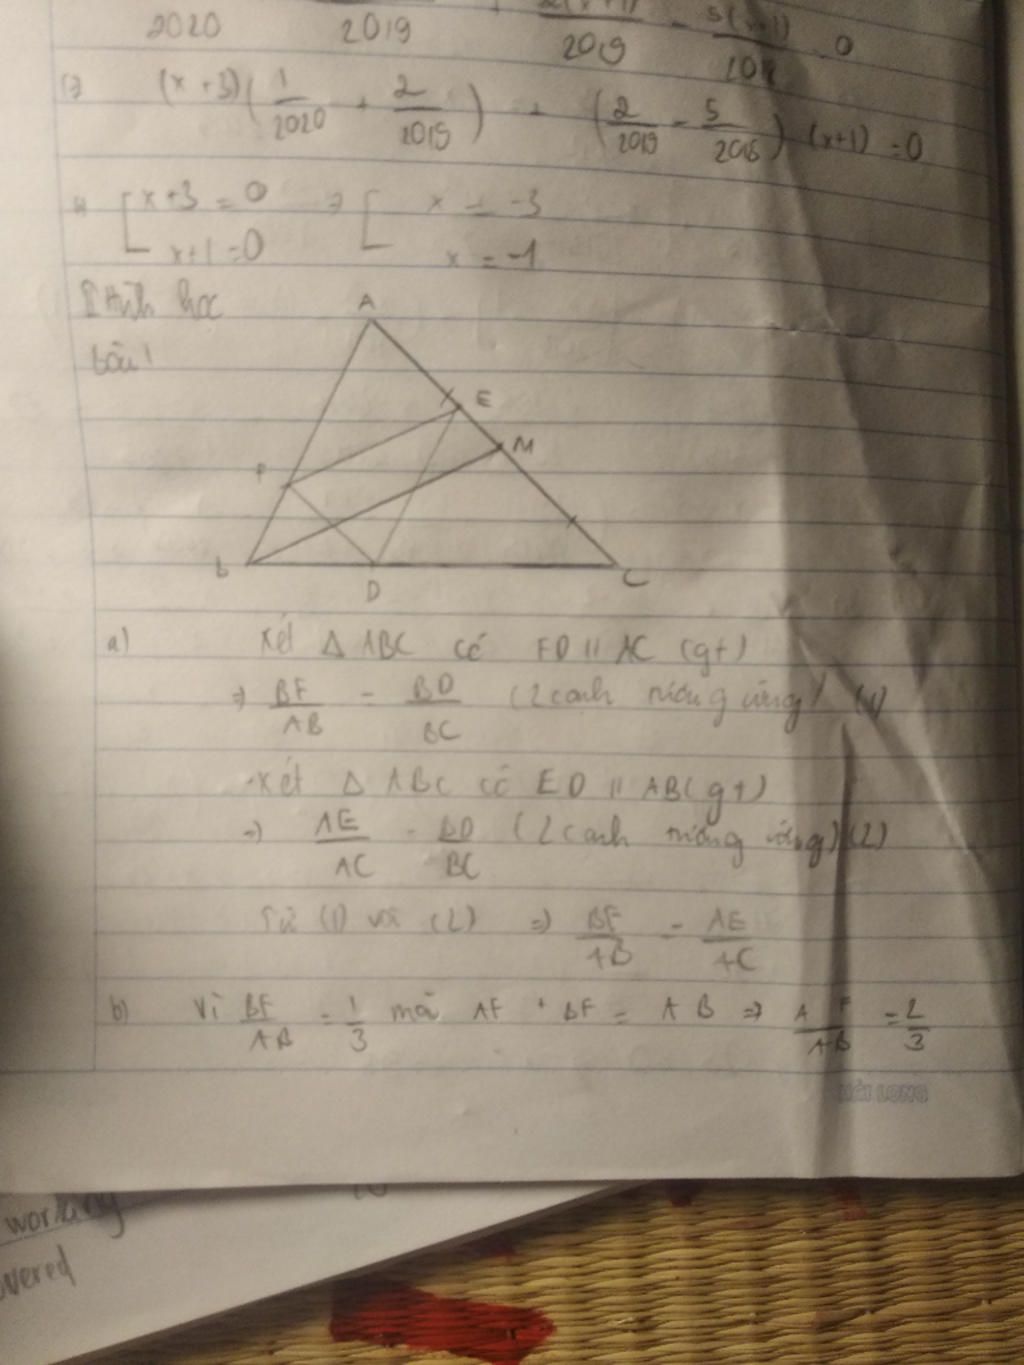 2020 2019 2019 - 5(x+1) 0
(x+3)(1/2020 + 2/2019) + (2/2019 - 5/2018) (x+1) = 0
[x+3=0 => [x=-3
x+1=0 x=-1
Hình học
bài 1
A
E
M
F
B
D
C
a) Xét Δ ABC có FD // AC (gt)
=> BF/AB = BD/BC (2 cạnh tương ứng) (1)
-Xét Δ ABC có ED // AB (gt)
=> AE/AC = BD/BC (2 cạnh tương ứng) (2)
Từ (1) và (2) => BF/AB = AE/AC
b) Vì BF/AB = 1/3 mà AF + BF = AB => AF/AB = 2/3
HẢI LONG
working
overed